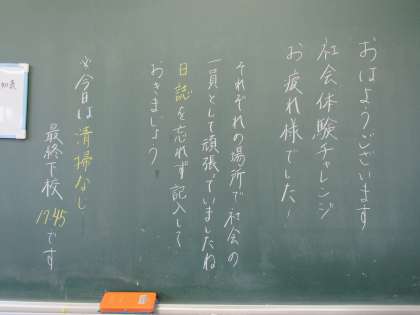 おはようございます
社会体験チャレンジ
お疲れ様でした!
それぞれの場所で社会の
一員として頑張っていましたね
日誌を忘れず記入して
おきましょう
※今日は清掃なし
最終下校17:45です